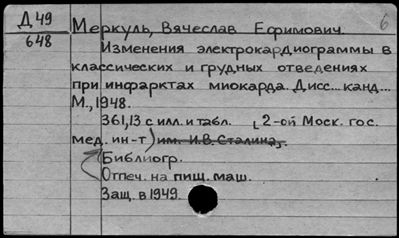 Д 49
648
6
Меркуль, Вячеслав Ефимович.
Изменения электрокардиограммы в
классических и грудных отведениях
при инфарктах миокарда. Дисс... канд...
М., 1948.
361,13 с илл. и табл. (2-ой Моск. гос.
мед. ин-т) им. И.В. Сталина).
Библиогр.
Отпеч. на пиш. маш.
Защ. в 1949.